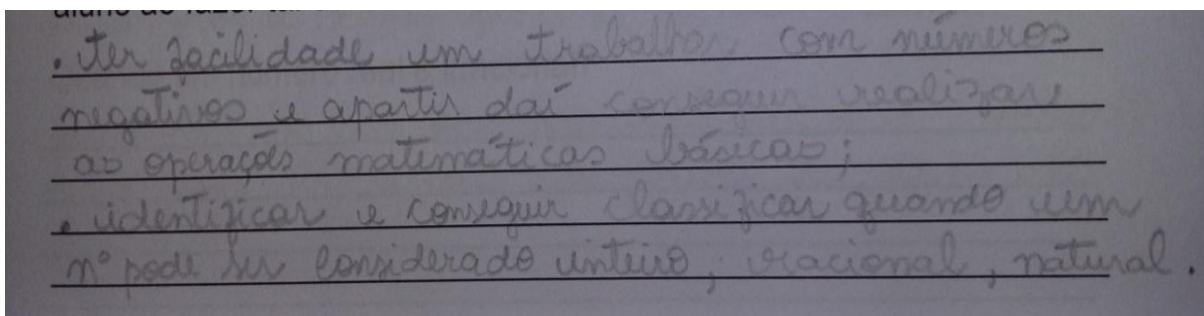 . ter facilidade em trabalhar com números
negativos e apartir daí conseguir realizar
as operações matemáticas básicas;
. identificar e conseguir classificar quando um
nº pode ser considerado inteiro, racional, natural.